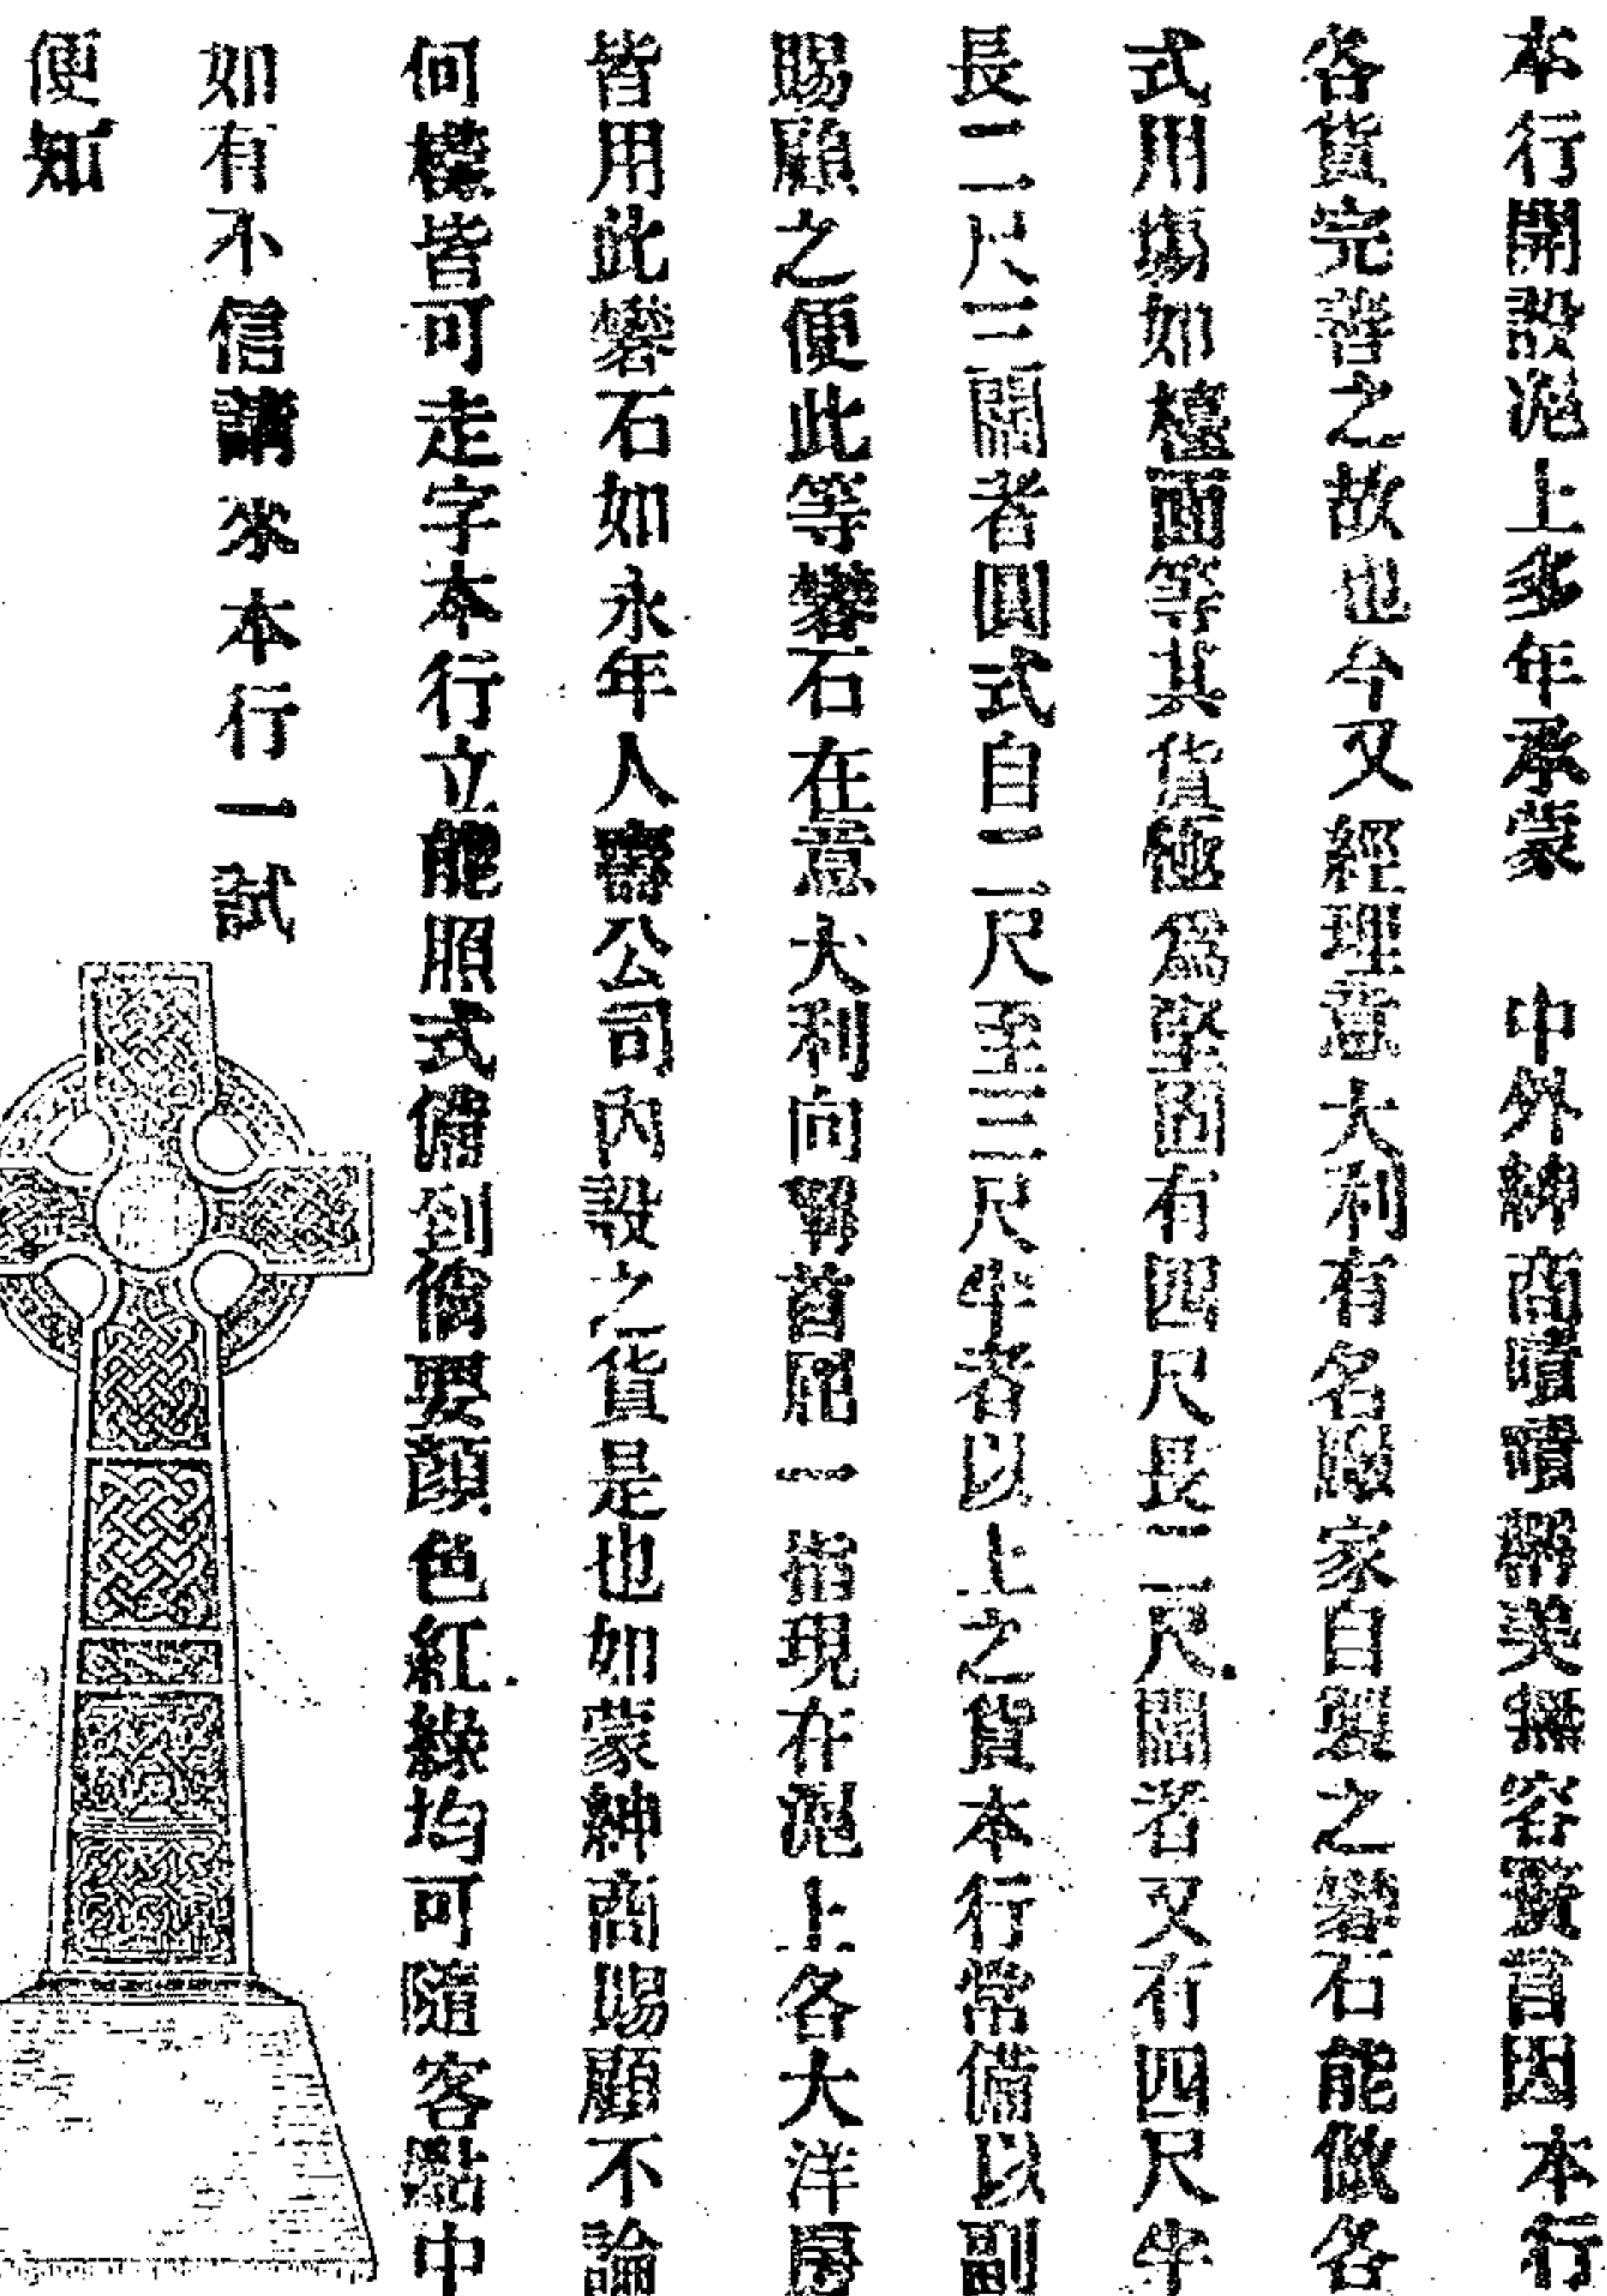 本行開設滬上多年承蒙　中外紳商嘖嘖稱美無容贅言因本行
各貨完善之故也今又經理意大利有名廠家自製之礬石能做各
式用塲如檯面等其貨極為堅固有四尺長二尺闊者又有四尺半
長二尺三闊者圓式自二尺至三尺半者以上之貨本行常備以副
賜顧之便此等礬石在意大利向翠首屈一指現在滬上各大洋房
皆用此礬石如永年人壽公司內設之貨是也如蒙紳商賜顧不論
何樣皆可走字本行立能照式備到儻要顏色紅綠均可隨客點中
如有不信請來本行一試
便知